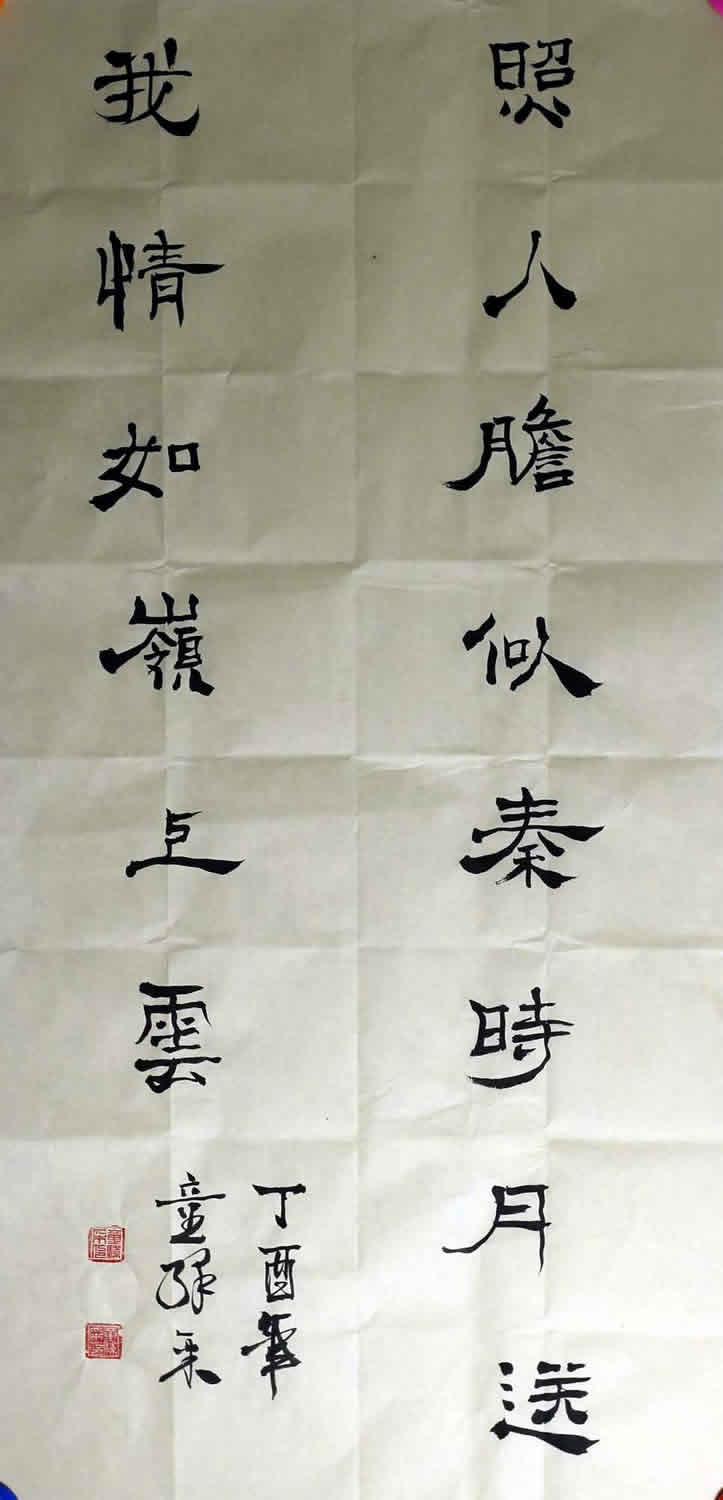 照人膽似秦時月送
我情如嶺上雲
丁酉年
童繹采